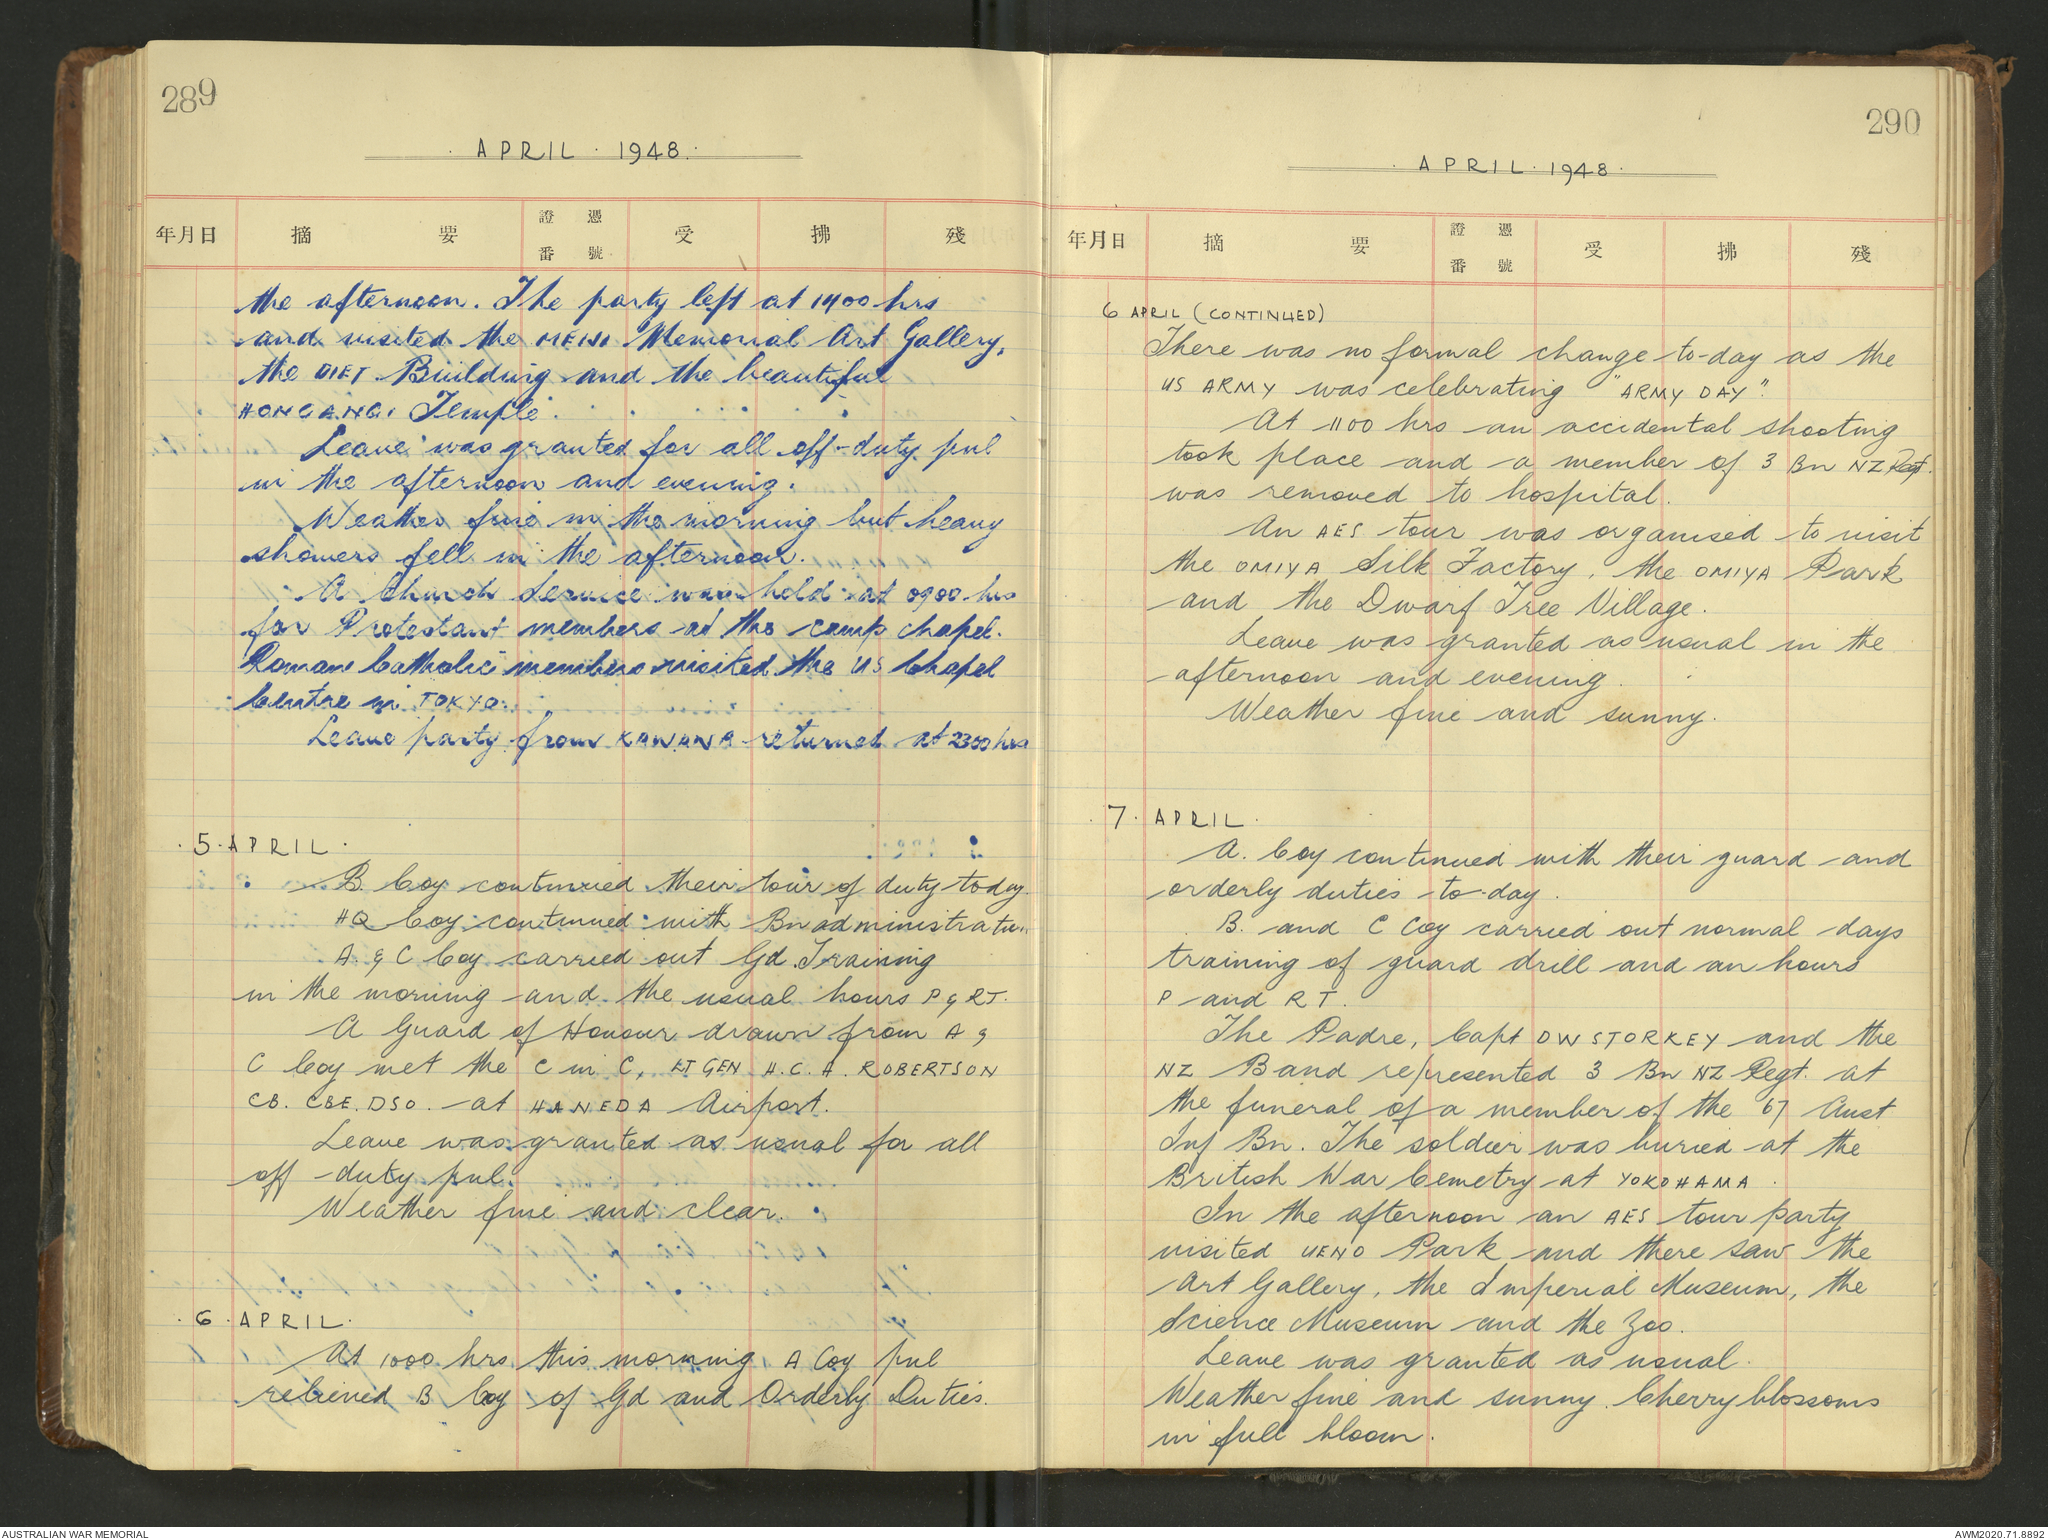 289
APRIL · 1948.
年月日 摘 要 證憑番號 受 拂 殘
the afternoon. The party left at 1400 hrs
and visited the MEIJI Memorial Art Gallery,
the DIET Building and the beautiful
HONGANGI Temple.
Leave was granted for all off-duty pnl
in the afternoon and evening.
Weather fine in the morning but heavy
showers fell in the afternoon.
A Church Service was held at 0900 hrs
for Protestant members at the camp chapel.
Roman Catholic members visited the US Chapel
Centre in TOKYO.
Leave party from KAWANA returned at 2300 hrs
5 · APRIL ·
B Coy continued their tour of duty today.
HQ Coy continued with Bn administratn.
A & C Coy carried out Gd Training
in the morning and the usual hours P & RT.
A Guard of Honour drawn from A &
C Coy met the C in C, LT GEN H.C.A. ROBERTSON
CB. CBE. DSO. at HANEDA Airport.
Leave was granted as usual for all
off-duty pnl.
Weather fine and clear.
· 6 · APRIL ·
At 1000 hrs this morning, A Coy pnl
relieved B Coy of Gd and Orderly Duties.
290
· APRIL · 1948 ·
年月日 摘 要 證憑番號 受 拂 殘
6 APRIL (CONTINUED)
There was no formal change to-day as the
US ARMY was celebrating "ARMY DAY".
At 1100 hrs an accidental shooting
took place and a member of 3 Bn NZ Regt.
was removed to hospital.
An AES tour was organised to visit
the OMIYA Silk Factory, the OMIYA Park
and the Dwarf Tree Village.
Leave was granted as usual in the
afternoon and evening.
Weather fine and sunny.
· 7 · APRIL ·
A. Coy continued with their guard and
orderly duties to-day.
B. and C Coy carried out normal days
training of guard drill and an hours
P and RT.
The Padre, Capt DW STORKEY and the
NZ Band represented 3 Bn NZ Regt. at
the funeral of a member of the 67 Aust
Inf Bn. The soldier was buried at the
British War Cemetry at YOKOHAMA.
In the afternoon an AES tour party
visited UENO Park and there saw the
Art Gallery, the Imperial Museum, the
Science Museum and the Zoo.
Leave was granted as usual.
Weather fine and sunny. Cherry blossoms
in full bloom.
AUSTRALIAN WAR MEMORIAL
AWM2020.71.8892